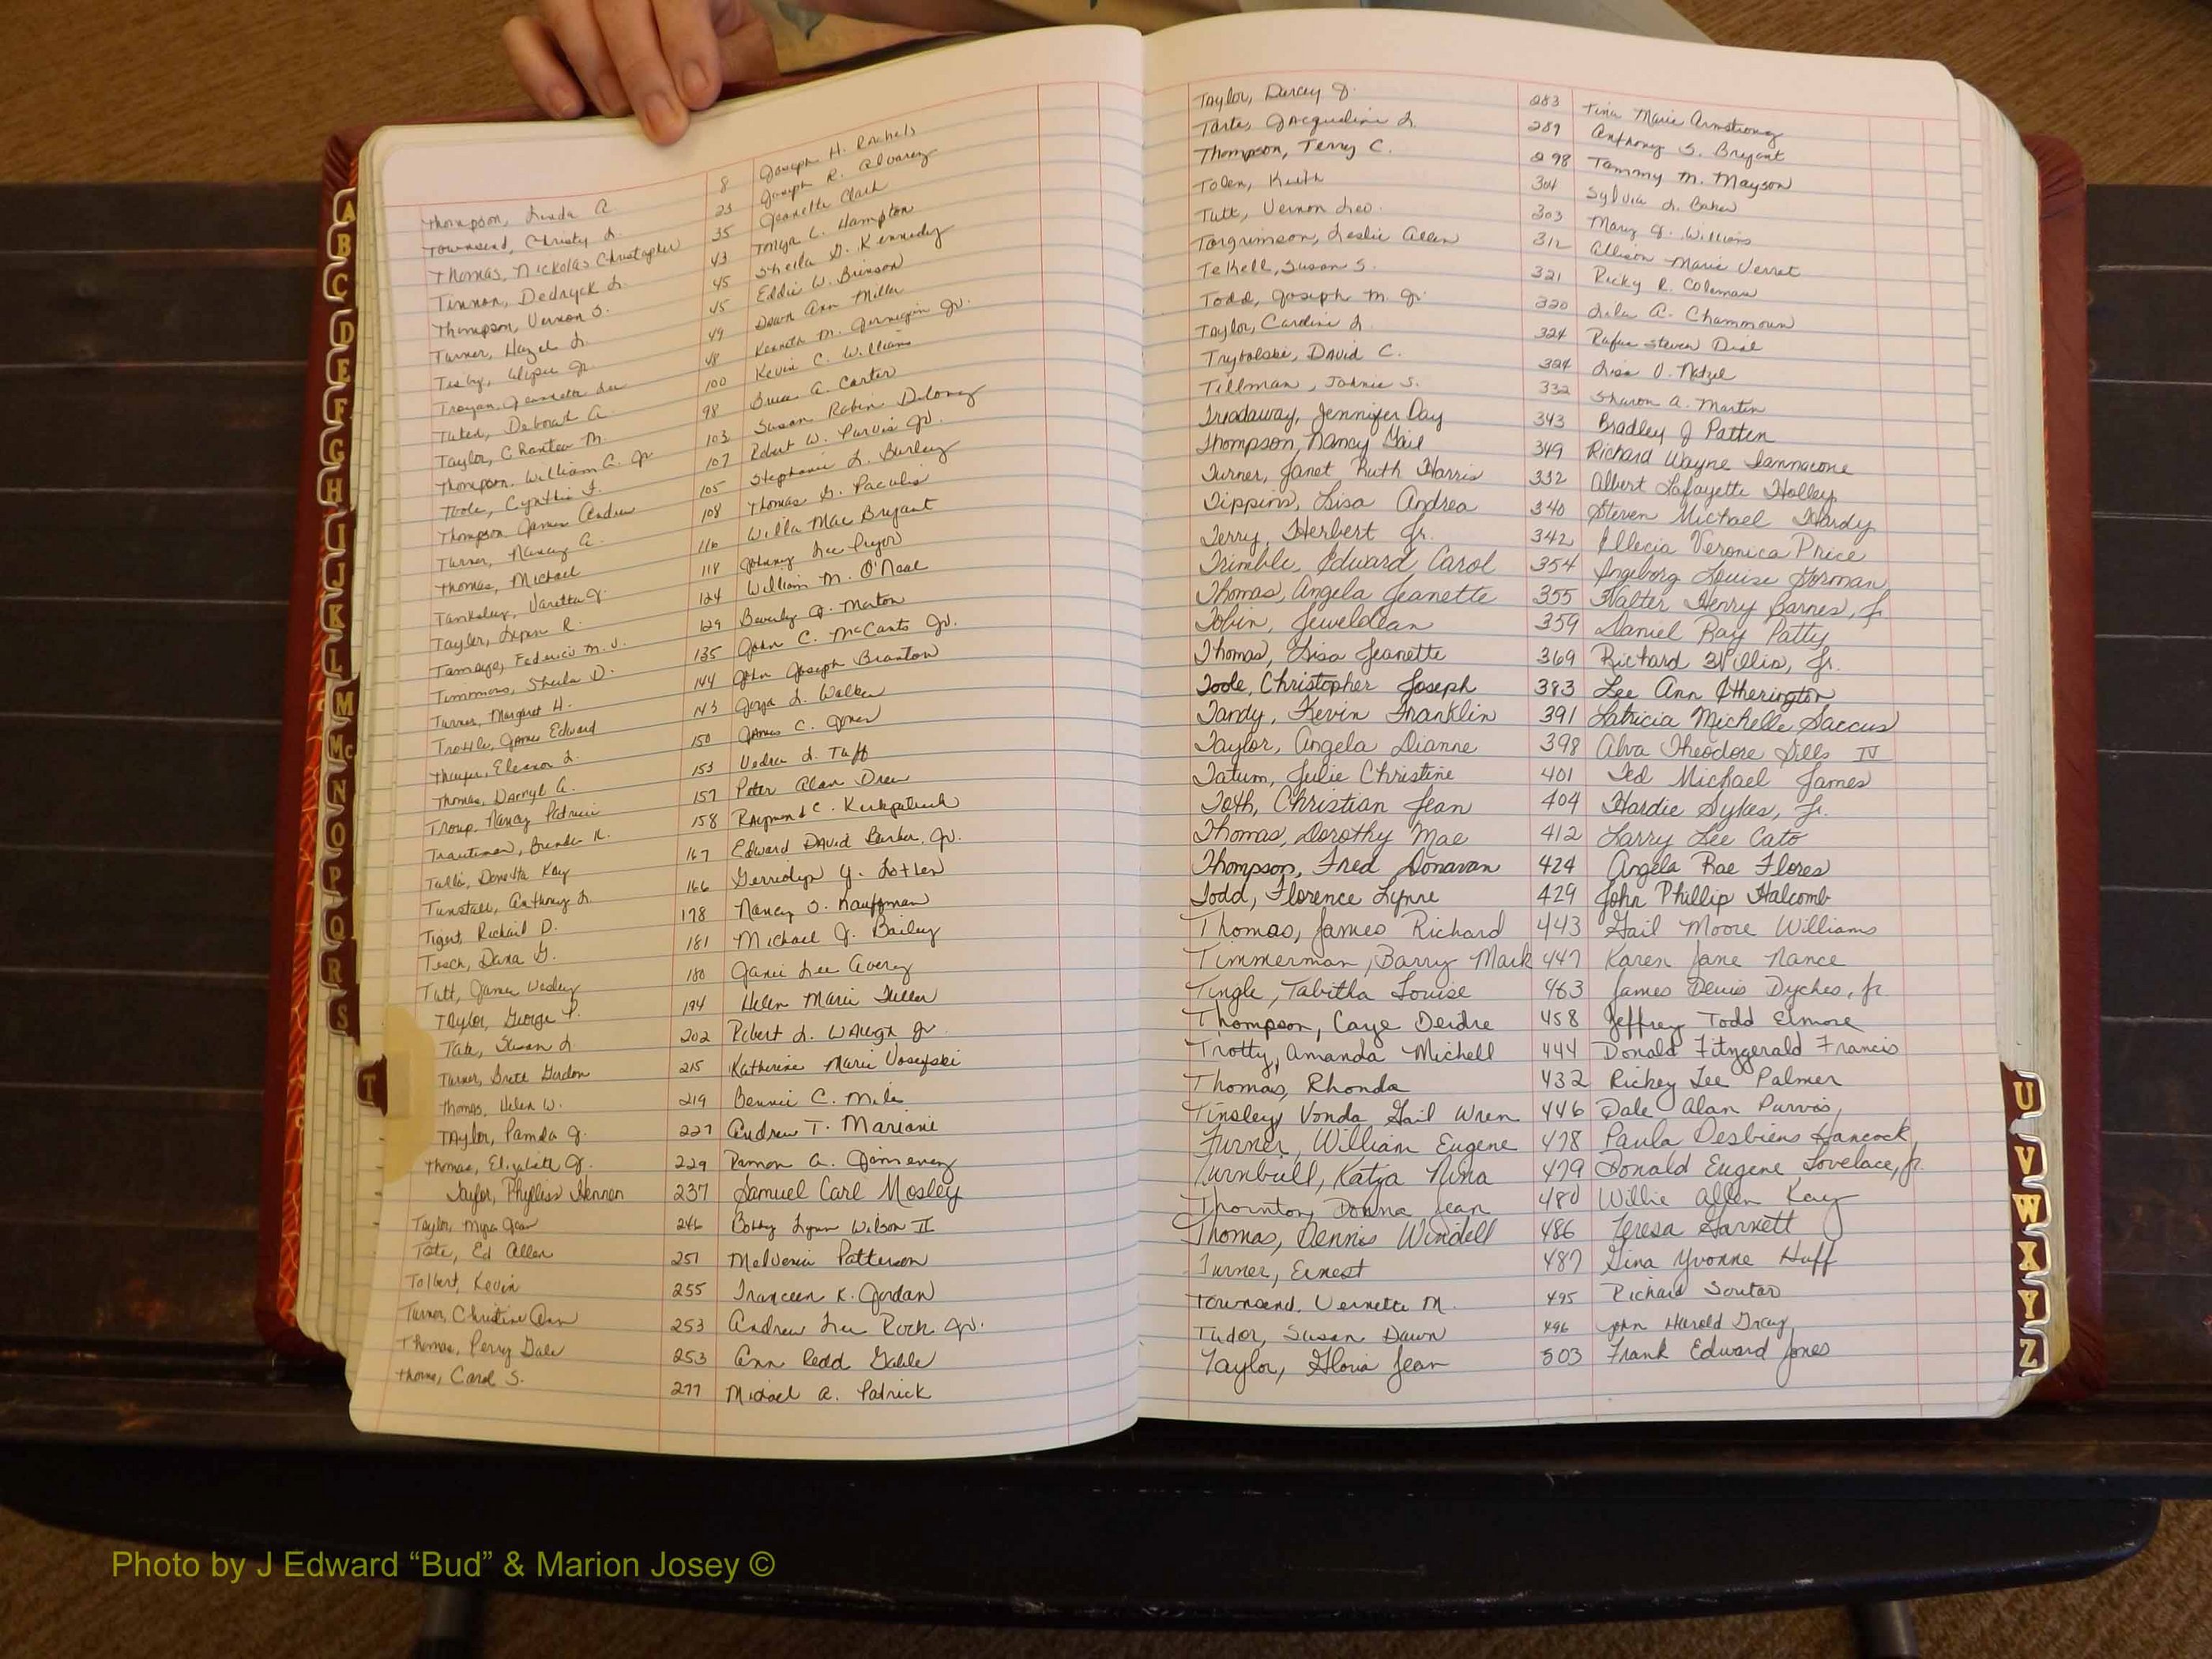 A
B
C
D
E
F
G
H
I
J
K
L
M
Mc
N
O
P
Q
R
S
T
Thompson, Linda A. 8 Joseph H. Rachels
Townsend, Christy L. 23 Joseph R. Alvarez
Thomas, Nickolas Christopher 35 Jeanette Clark
Tinnon, Dedryck L. 43 Tonya L. Hampton
Thompson, Vernon O. 45 Sheila G. Kennedy
Turner, Hazel L. 45 Eddie W. Brinson
49 Dawn Ann Miller
Troyan, Jeannette Lee 48 Kenneth M. Jernigin Jr.
Deborah A. 100 Kevin C. Williams
Taylor, Chantea M. 98 Bruce A. Carter
Thompson, William A. Jr 103 Susan Robin
Toole, Cynthia F. 107 Robert W. Purvis Jr.
Thompson James Andrew 105 Stephanie L. Burley
Turner, Nancy A. 108 Thomas G.
Thomas, Michael 116 Willa Mae Bryant
Tanksley, Varetta J. 118 Johnny Lee Pryor
Taylor, Lynn R. 124 William M. O'Neal
Tamayo, Federico M. J. 129 Beverly J. Morton
Timmons, Sheila D. 135 John C. McCants Jr.
Turner, Margaret H. 144 John Joseph Branton
Trottle, James Edward 143 L. Walker
Thayer, Eleanor L. 150 James C. Jones
Thomas, Darryl A. 153 Vedra L. Taff
Troup, Nancy Patricia 157 Peter Alan Drew
Trautman, Brenda K. 158 Raymond C. Kirkpatrick
Tullis, Donetta Kay 167 Edward David Barber, Jr.
Tunstall, Anthony L. 166 Gerridlyn Y.
Tigert, Richard D. 178 Nancy O. Kauffman
Tesch, Dana G. 181 Michael J. Bailey
Tatt, James Wesley 180 Janie Lee Avery
Taylor, George P. 194 Helen Marie
Tate, Susan L 202 Robert L. Waugh Jr
Turner, Brett Gordon 215 Katherine Marie
Thomas, Helen W. 219 Bennie C.
Taylor, Pamela J. 227 Andrew T. Mariani
Thomas, Elizabeth J. 229 Ramon A.
Taylor, Phyllis Hennen 237 Samuel Carl Mosley
Taylor, Myra Jean 246 Bobby Lynn Wilson II
Tate, Ed Allen 251 Melvenia Patterson
Tolbert, Kevin 255 Franceen K. Jordan
Turner, Christine Ann 253 Andrew Lee Rock Jr.
Thomas, Perry Dale 253 Ann Redd Gable
Thorne, Carol S. 277 Michael A. Patrick
Taylor, Darcey J. 283 Tina Marie Armstrong
Tarte, Jacqueline L. 289 Anthony S. Bryant
Thompson, Terry C. 298 Tammy M. Mayson
Tolen, Keith 304 Sylvia L. Baker
Tutt, Vernon Leo. 303 Mary J. Williams
Torgrimson, Leslie Allen 312 Allison Marie Verret
Tekell, Susan S. 321 Ricky R. Coleman
Todd, Joseph M. Jr. 320 Lila A. Chammoun
Taylor, Caroline L. 324 Rufus Steven Dial
Trybalski, David C. 324 Lisa V. Natzel
Tillman, Johnie S. 332 Sharon A. Martin
Treadaway, Jennifer Day 343 Bradley J Patten
Thompson, Nancy Gail 349 Richard Wayne Iannacone
Turner, Janet Ruth Harris 332 Albert Lafayette Holley
Tippins, Lisa Andrea 340 Steven Michael Hardy
Terry, Herbert Jr. 342 Ellecia Veronica Price
Trimble, Edward Carol 354 Ingeborg Louise Horman
Thomas, Angela Jeanette 355 Walter Henry Barnes, Jr
Tobin, Jeweldean 359 Daniel Ray Patty
Thomas, Lisa Jeanette 369 Richard Willis, Jr.
Toole, Christopher Joseph 383 Lee Ann Etherington
Tandy, Kevin Franklin 391 Latricia Michelle Saccus
Taylor, Angela Dianne 398 Alva Theodore Sills IV
Tatum, Julie Christine 401 Ted Michael James
Toth, Christian Jean 404 Hardie Sykes, Jr.
Thomas, Dorothy Mae 412 Larry Lee Cato
Thompson, Fred Donavan 424 Angela Rae Flores
Todd, Florence Lynne 429 John Phillip Halcomb
Thomas, James Richard 443 Gail Moore Williams
Timmerman, Barry Mark 447 Karen Jane Nance
Tingle, Tabitha Louise 463 James Denis Dyches, Jr.
Thompson, Caye Deidre 458 Jeffrey Todd Elmore
Trotty, Amanda Michell 444 Donald Fitzgerald Francis
Thomas, Rhonda 432 Rickey Lee Palmer
Tinsley, Vonda Gail Wren 446 Dale Alan Purvis
Turner, William Eugene 478 Paula Desbiens Hancock
Turnbull, Katja Nina 479 Donald Eugene Lovelace, Jr.
Thornton, Donna Jean 480 Willie Allen Kay
Thomas, Dennis Windell 486 Teresa Garnett
Turner, Ernest 487 Gina Yvonne Huff
Townsend, Vernetta M. 495 Richard Soutar
Tudor, Susan Dawn 496 John Harold Gray
Taylor, Gloria Jean 503 Frank Edward Jones
U
V
W
X
Y
Z
Photo by J Edward “Bud” & Marion Josey ©